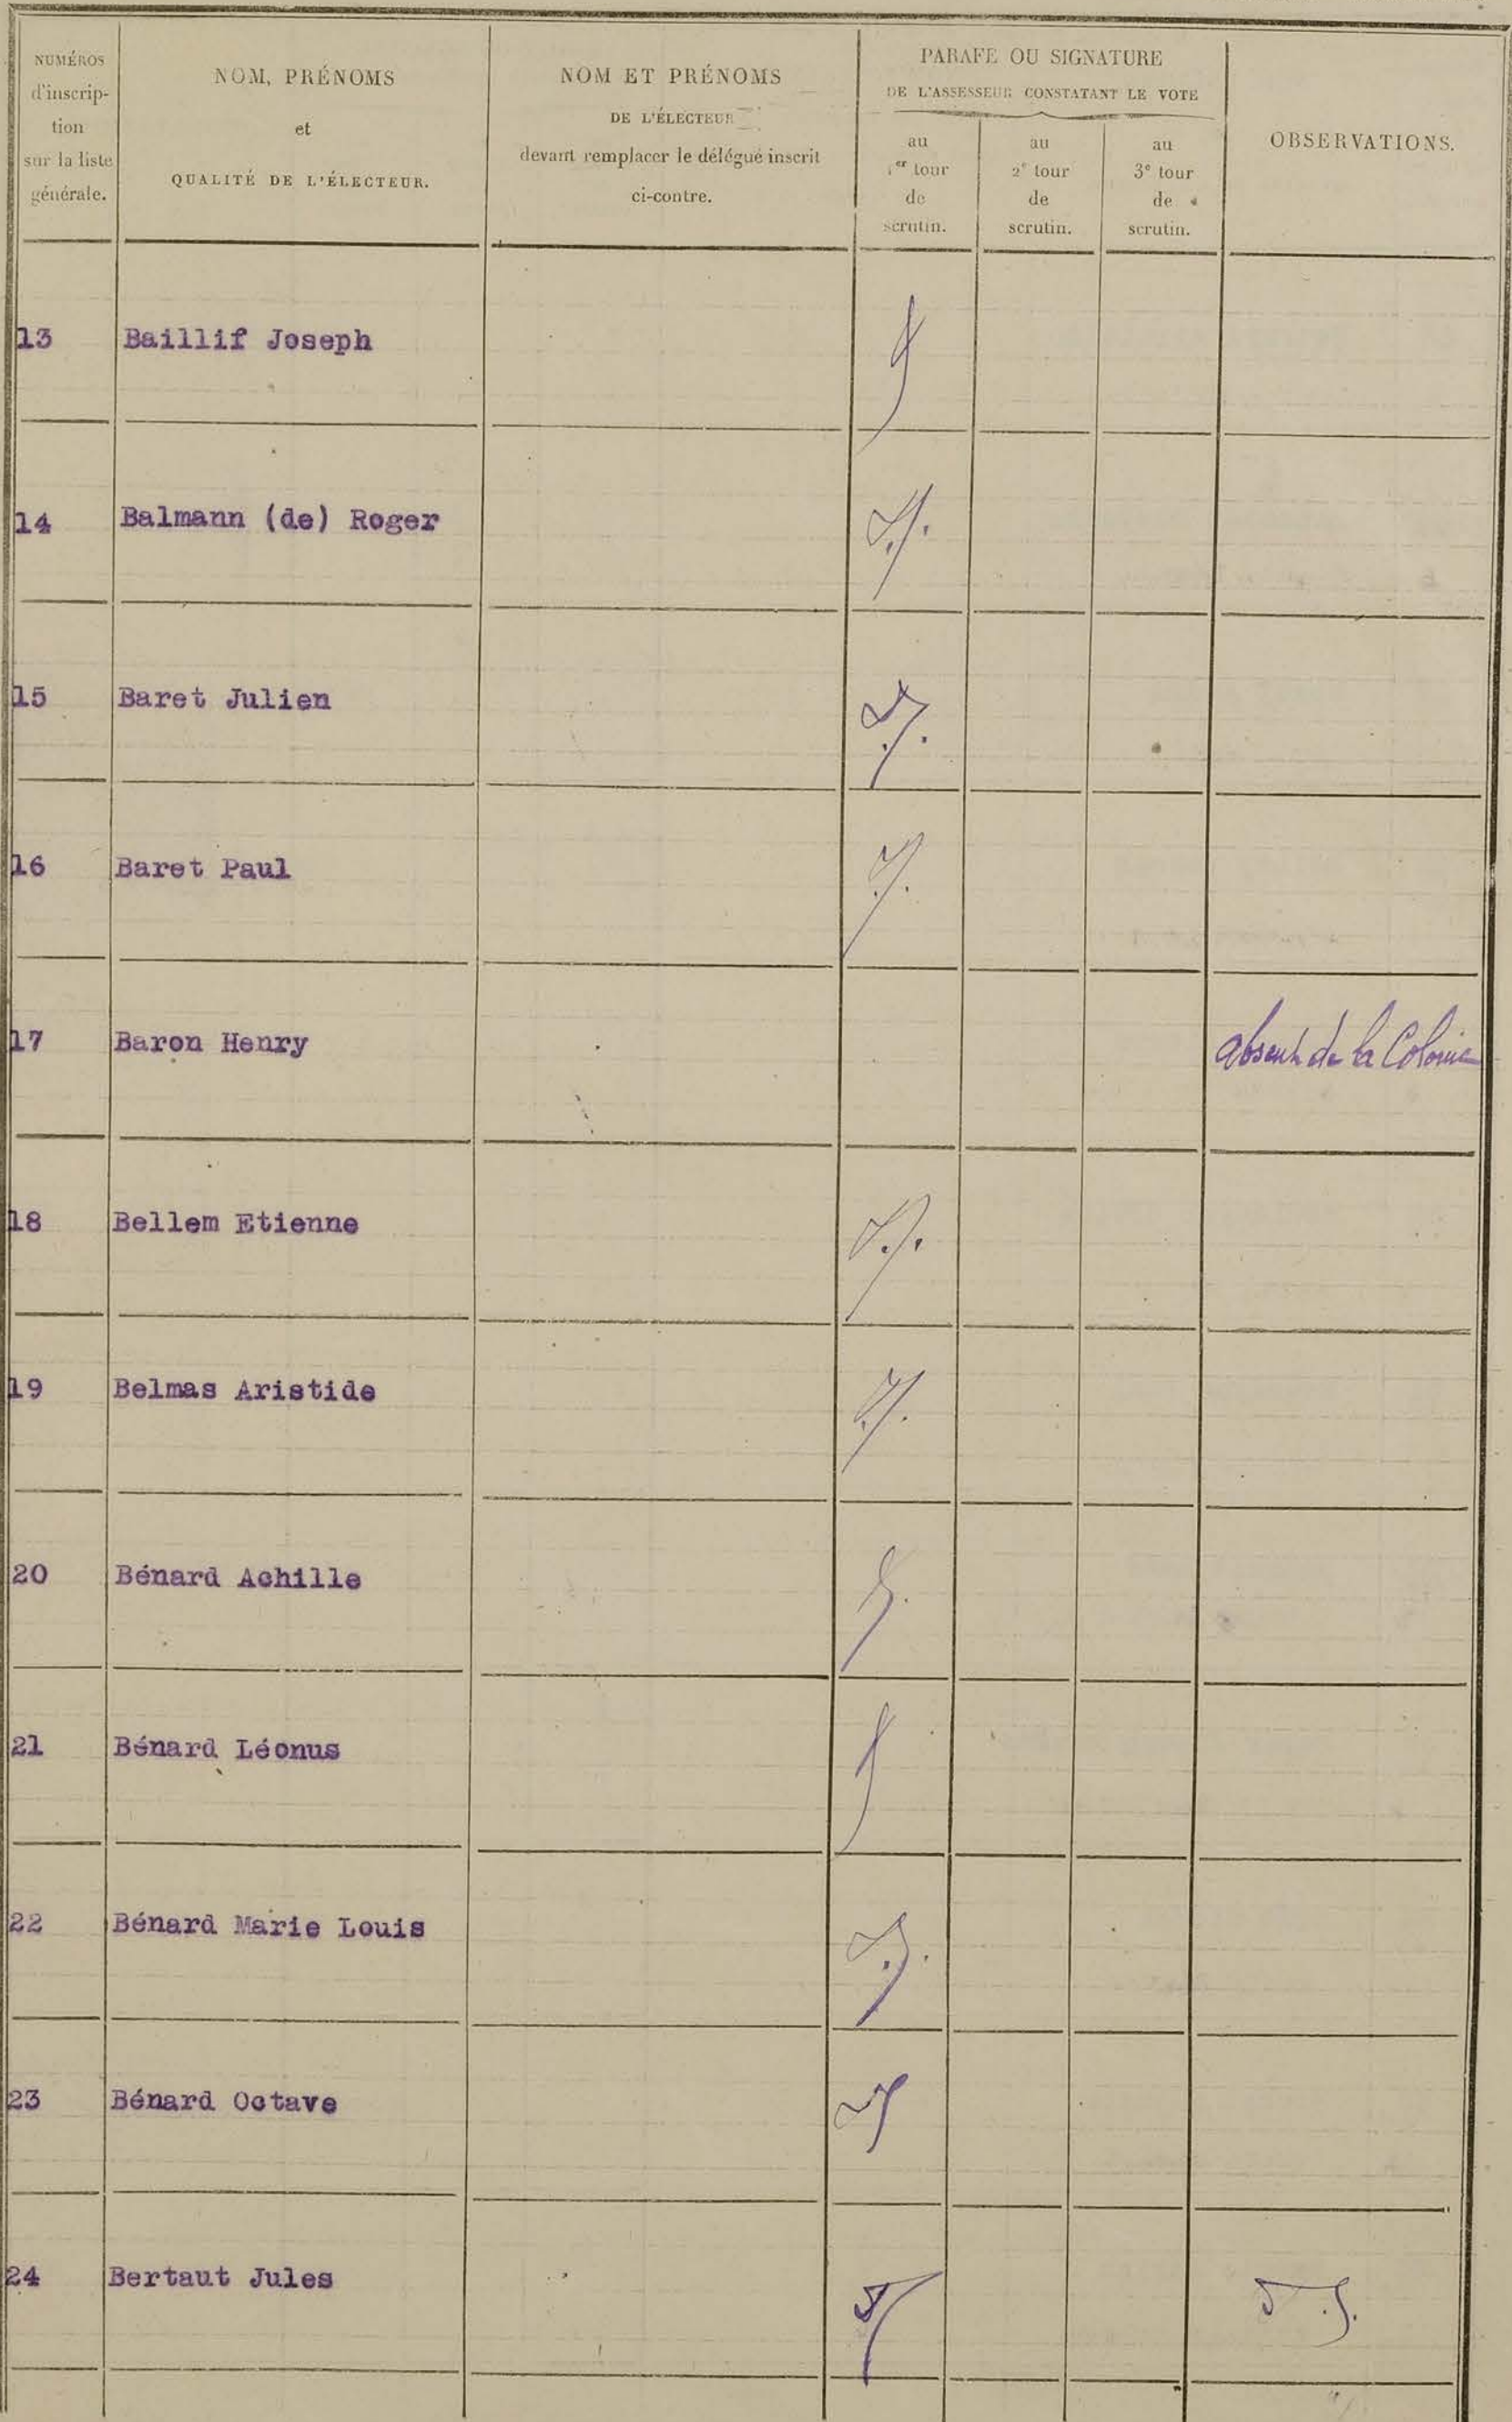 NUMÉROS
d'inscrip-
tion
sur la liste
générale.
NOM, PRÉNOMS
et
QUALITÉ DE L'ÉLECTEUR.
NOM ET PRÉNOMS
DE L'ÉLECTEUR
devant remplacer le délégué inscrit
ci-contre.
PARAFE OU SIGNATURE
DE L'ASSESSEUR CONSTATANT LE VOTE
au
1er tour
de
scrutin.
au
2e tour
de
scrutin.
au
3e tour
de
scrutin.
OBSERVATIONS.
13 Baillif Joseph
14 Balmann (de) Roger
15 Baret Julien
16 Baret Paul
17 Baron Henry absent de la Colonie
18 Bellem Etienne
19 Belmas Aristide
20 Bénard Achille
21 Bénard Léonus
22 Bénard Marie Louis
23 Bénard Octave
24 Bertaut Jules